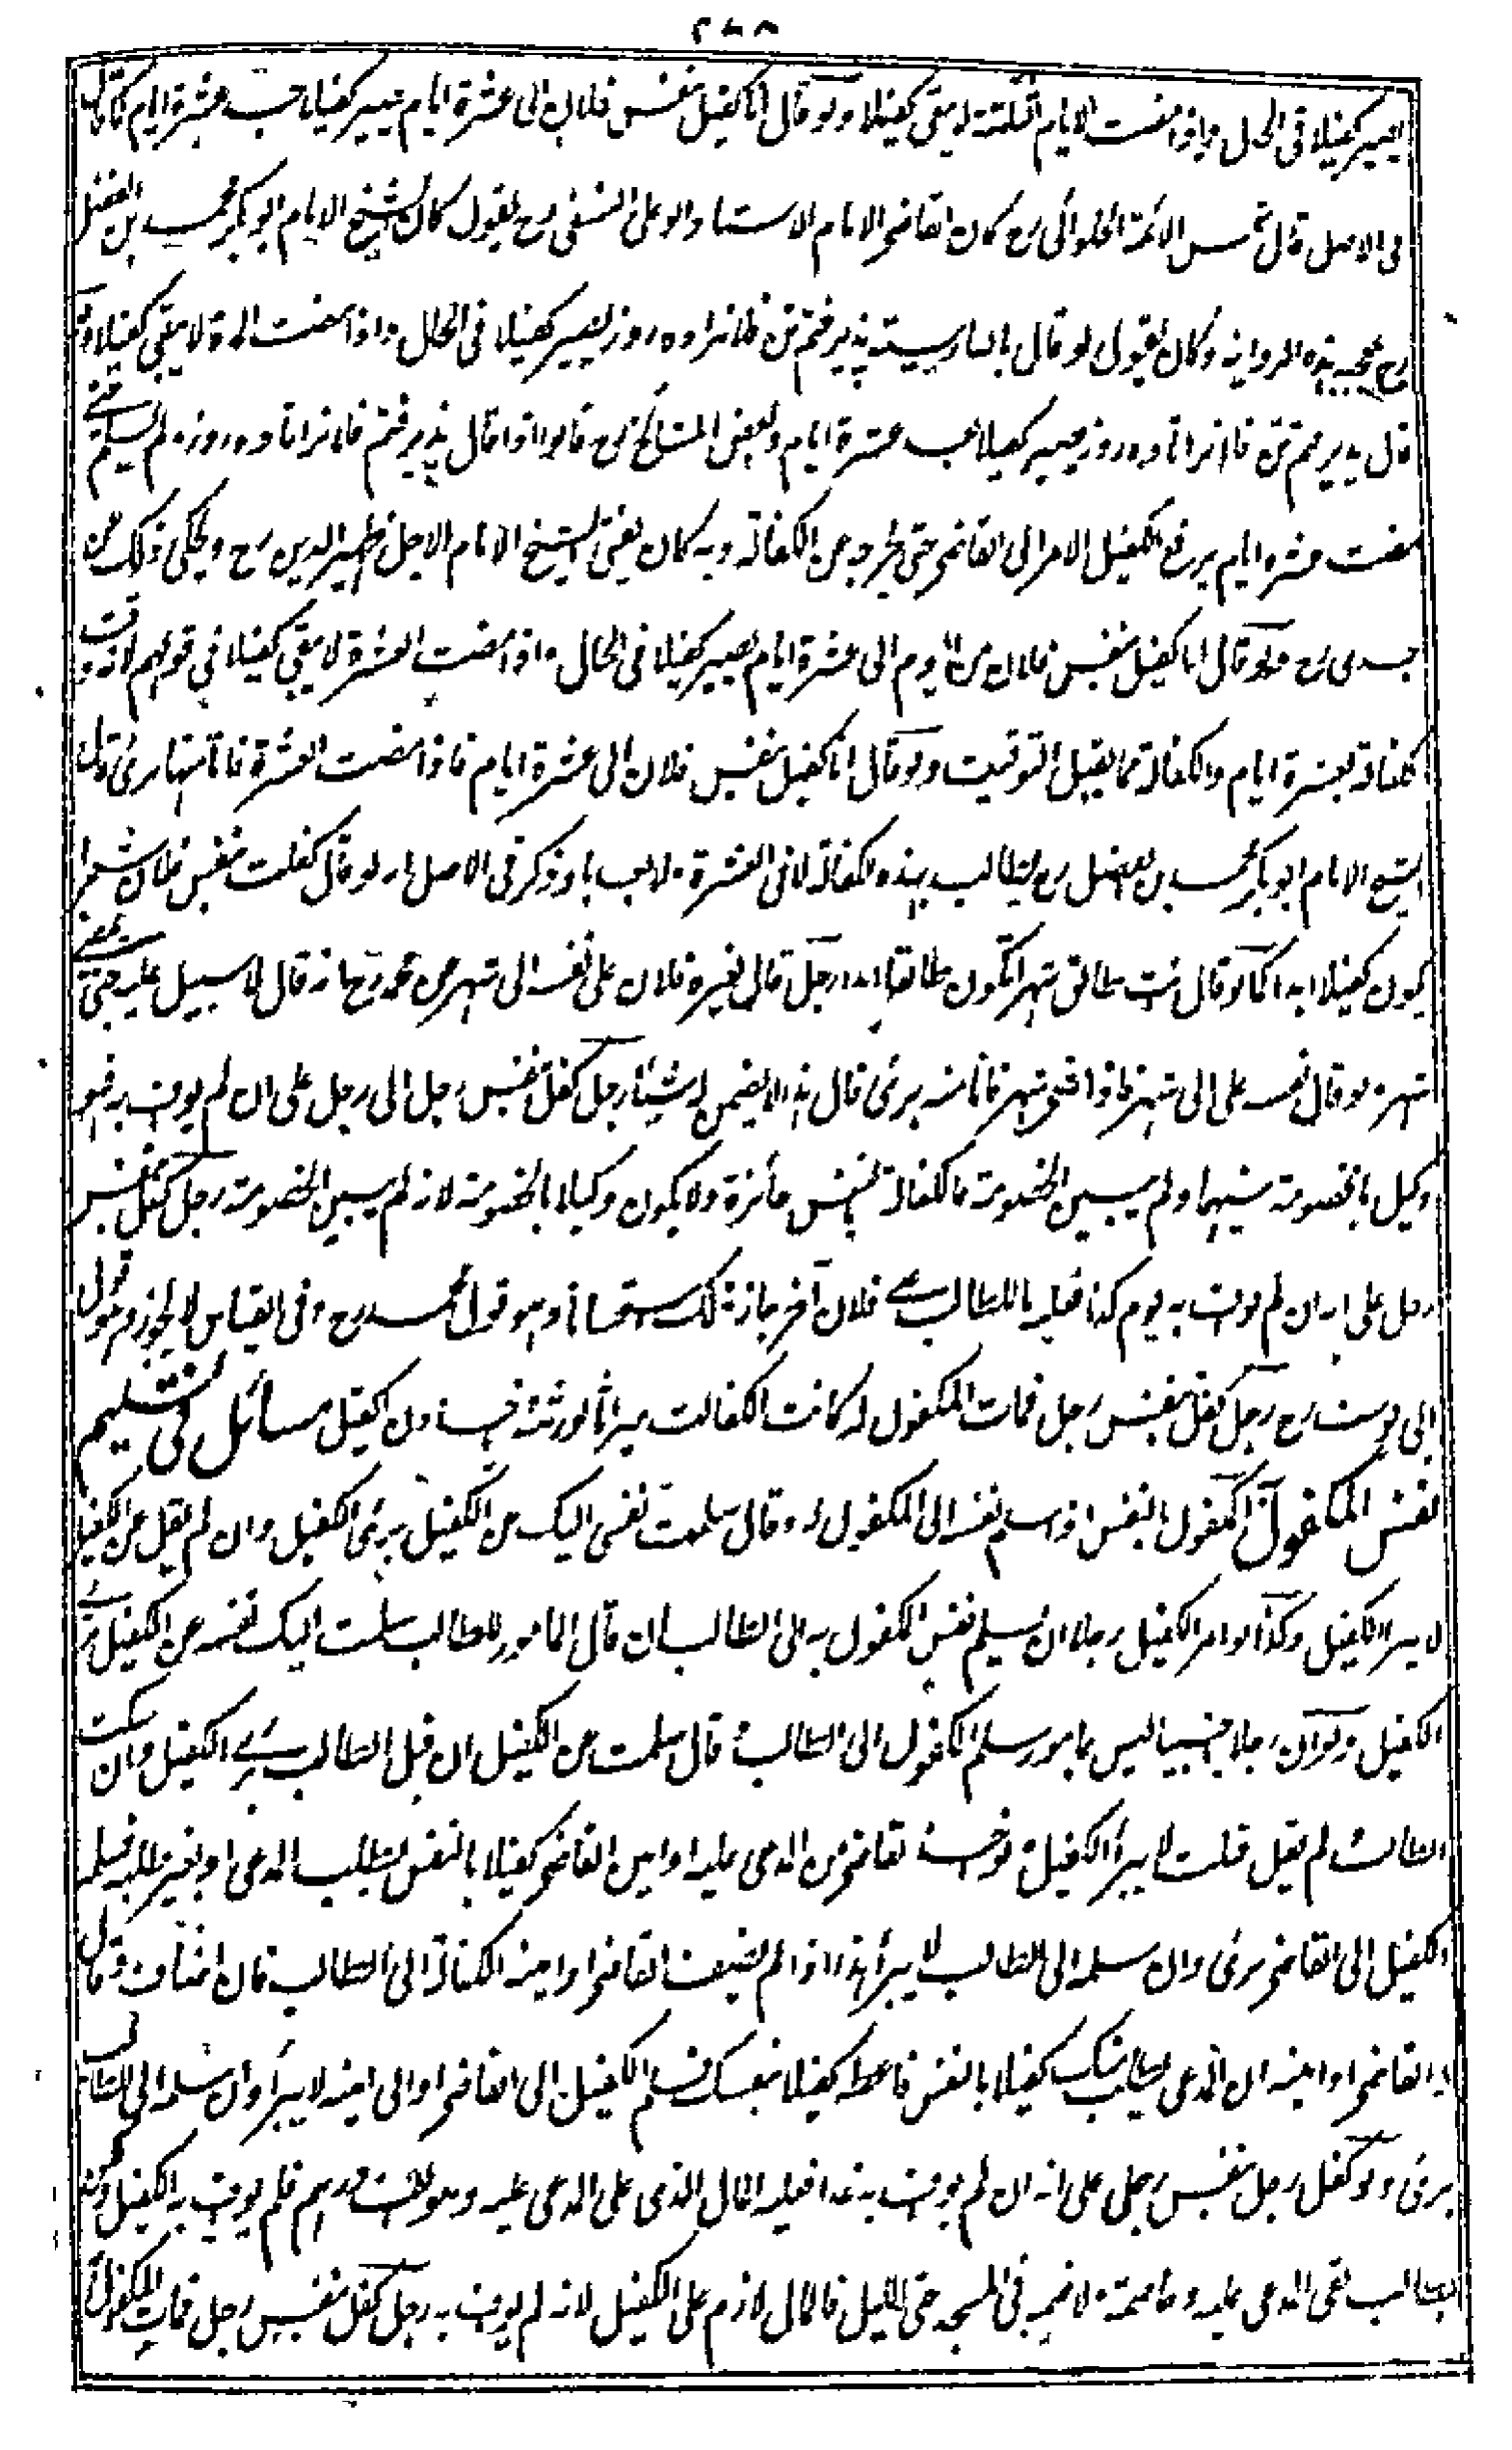 ٢٧٨
يصير كفيلا فى الحال واذا مضت الايام الثلثة لا يبقى كفيلا ولو قال انا كفيل بنفس فلان الى عشرة ايام يصير كفيلا بعد عشرة ايام كما قال
فى الاصل قال شمس الائمة الحلوائى رح كان القاضى الامام الاستاد ابو على النسفى رح يقول كان الشيخ الامام ابو بكر محمد بن الفضل
رح يعجبه هذه الرواية وكان يقول لو قال بالفارسية پذيرفتم تن فلانرا ده روز يصير كفيلا فى الحال واذا مضت المدة لا يبقى كفيلا ولو
قال پذيرفتم تن فلانرا تا ده روز يصير كفيلا بعد عشرة ايام وبعض المشائخ رح قالوا اذا قال پذيرفتم فلانرا تا ده روز لم يسلم حتى
مضت عشرة ايام يرفع الكفيل الامر الى القاضى حتى يخرجه عن الكفالة وبه كان يفتى الشيخ الامام الاجل ظهير الدين رح ويحكى ذلك عن
جدى رح ولو قال انا كفيل بنفس فلان من اليوم الى عشرة ايام يصير كفيلا فى الحال واذا مضت العشرة لا يبقى كفيلا فى قولهم لانه وقت
الكفالة بعشرة ايام والكفالة مما يقبل التوقيت ولو قال انا كفيل بنفس فلان الى عشرة ايام فاذا مضت العشرة فانا منها برئ قال
الشيخ الامام ابو بكر محمد بن الفضل رح لا يطالب بهذه الكفالة لا فى العشرة ولا بعدها وذكر فى الاصل انه لو قال كفلت بنفس فلان شهرا
يكون كفيلا ابدا كما لو قال انت طالق شهرا تكون طالقا ابدا رجل قال لغيره فلان على نفسه الى شهر عن محمد رح انه قال لا سبيل عليه حتى يمضى
شهر ولو قال نفسه على الى شهر فاذا مضى شهر فانا منه برئ قال هذا لا يضمن له شيئا رجل كفل بنفس رجل الى رجل على ان لم يواف به فهو
وكيل بالخصومة بينهما ولم يبين الخصومة فالكفالة بالنفس جائزة ولا يكون وكيلا بالخصومة لانه لم يبين الخصومة رجل كفل بنفس
رجل على انه ان لم يواف به يوم كذا فعليه ما للطالب على فلان آخر جاز ذلك استحسانا وهو قول محمد رح وفى القياس لا يجوز وهو قول
ابى يوسف رح رجل كفل بنفس رجل فمات المكفول له كانت الكفالت ميراثا لورثته فيأخذون الكفيل مسائل فى تسليم
نفس المكفول به المكفول بالنفس اذا سلم نفسه الى المكفول له وقال سلمت نفسى اليك عن الكفيل برئ الكفيل وان لم يقل عن الكفيل
لا يبرأ الكفيل وكذا لو امر الكفيل رجلا ان يسلم نفس المكفول به الى الطالب ان قال المامور للطالب سلمت اليك نفسه عن الكفيل برئ
الكفيل ولو ان رجلا اجنبيا ليس بمامور سلم المكفول الى الطالب وقال سلمت عن الكفيل ان قبل الطالب برئ الكفيل وان سكت
الطالب لم يقل قبلت لا يبرأ الكفيل ولو اخذ القاضى من المدعى عليه او امين القاضى كفيلا بالنفس بطلب المدعى او بغير طلبه فسلم
الكفيل الى القاضى برئ وان سلمه الى الطالب لا يبرأ هذا اذا لم يضف القاضى او امينه الكفالة الى الطالب فان اضاف وقال
له القاضى او امينه ان المدعى يطلب منك كفيلا بالنفس فاعطه كفيلا بنفسك فسلم الكفيل الى القاضى او الى امينه لا يبرأ وان سلمه الى الطالب
برئ ولو كفل رجل بنفس رجل على انه ان لم يواف به غدا فعليه المال الذى على المدعى عليه وهو الف درهم فلم يواف به الكفيل ولكن
الطالب لقى المدعى عليه وخاصمه ولازمه فى المسجد حتى الليل فالمال لازم على الكفيل لانه لم يواف به رجل كفل بنفس رجل فمات المكفول له